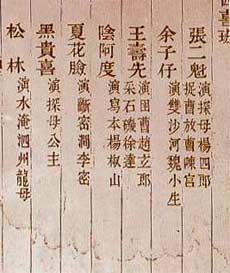 四喜班
張二魁 演探母楊四郎
捉曹放曹陳宮
余子仔 演雙沙河魏小生
王壽先 演困曹趙玄郎
采石磯徐達
陰阿度 演寫本楊椒山
夏花臉 演斷密澗李密
黑貴喜 演探母公主
松林 演水淹泗州龍母